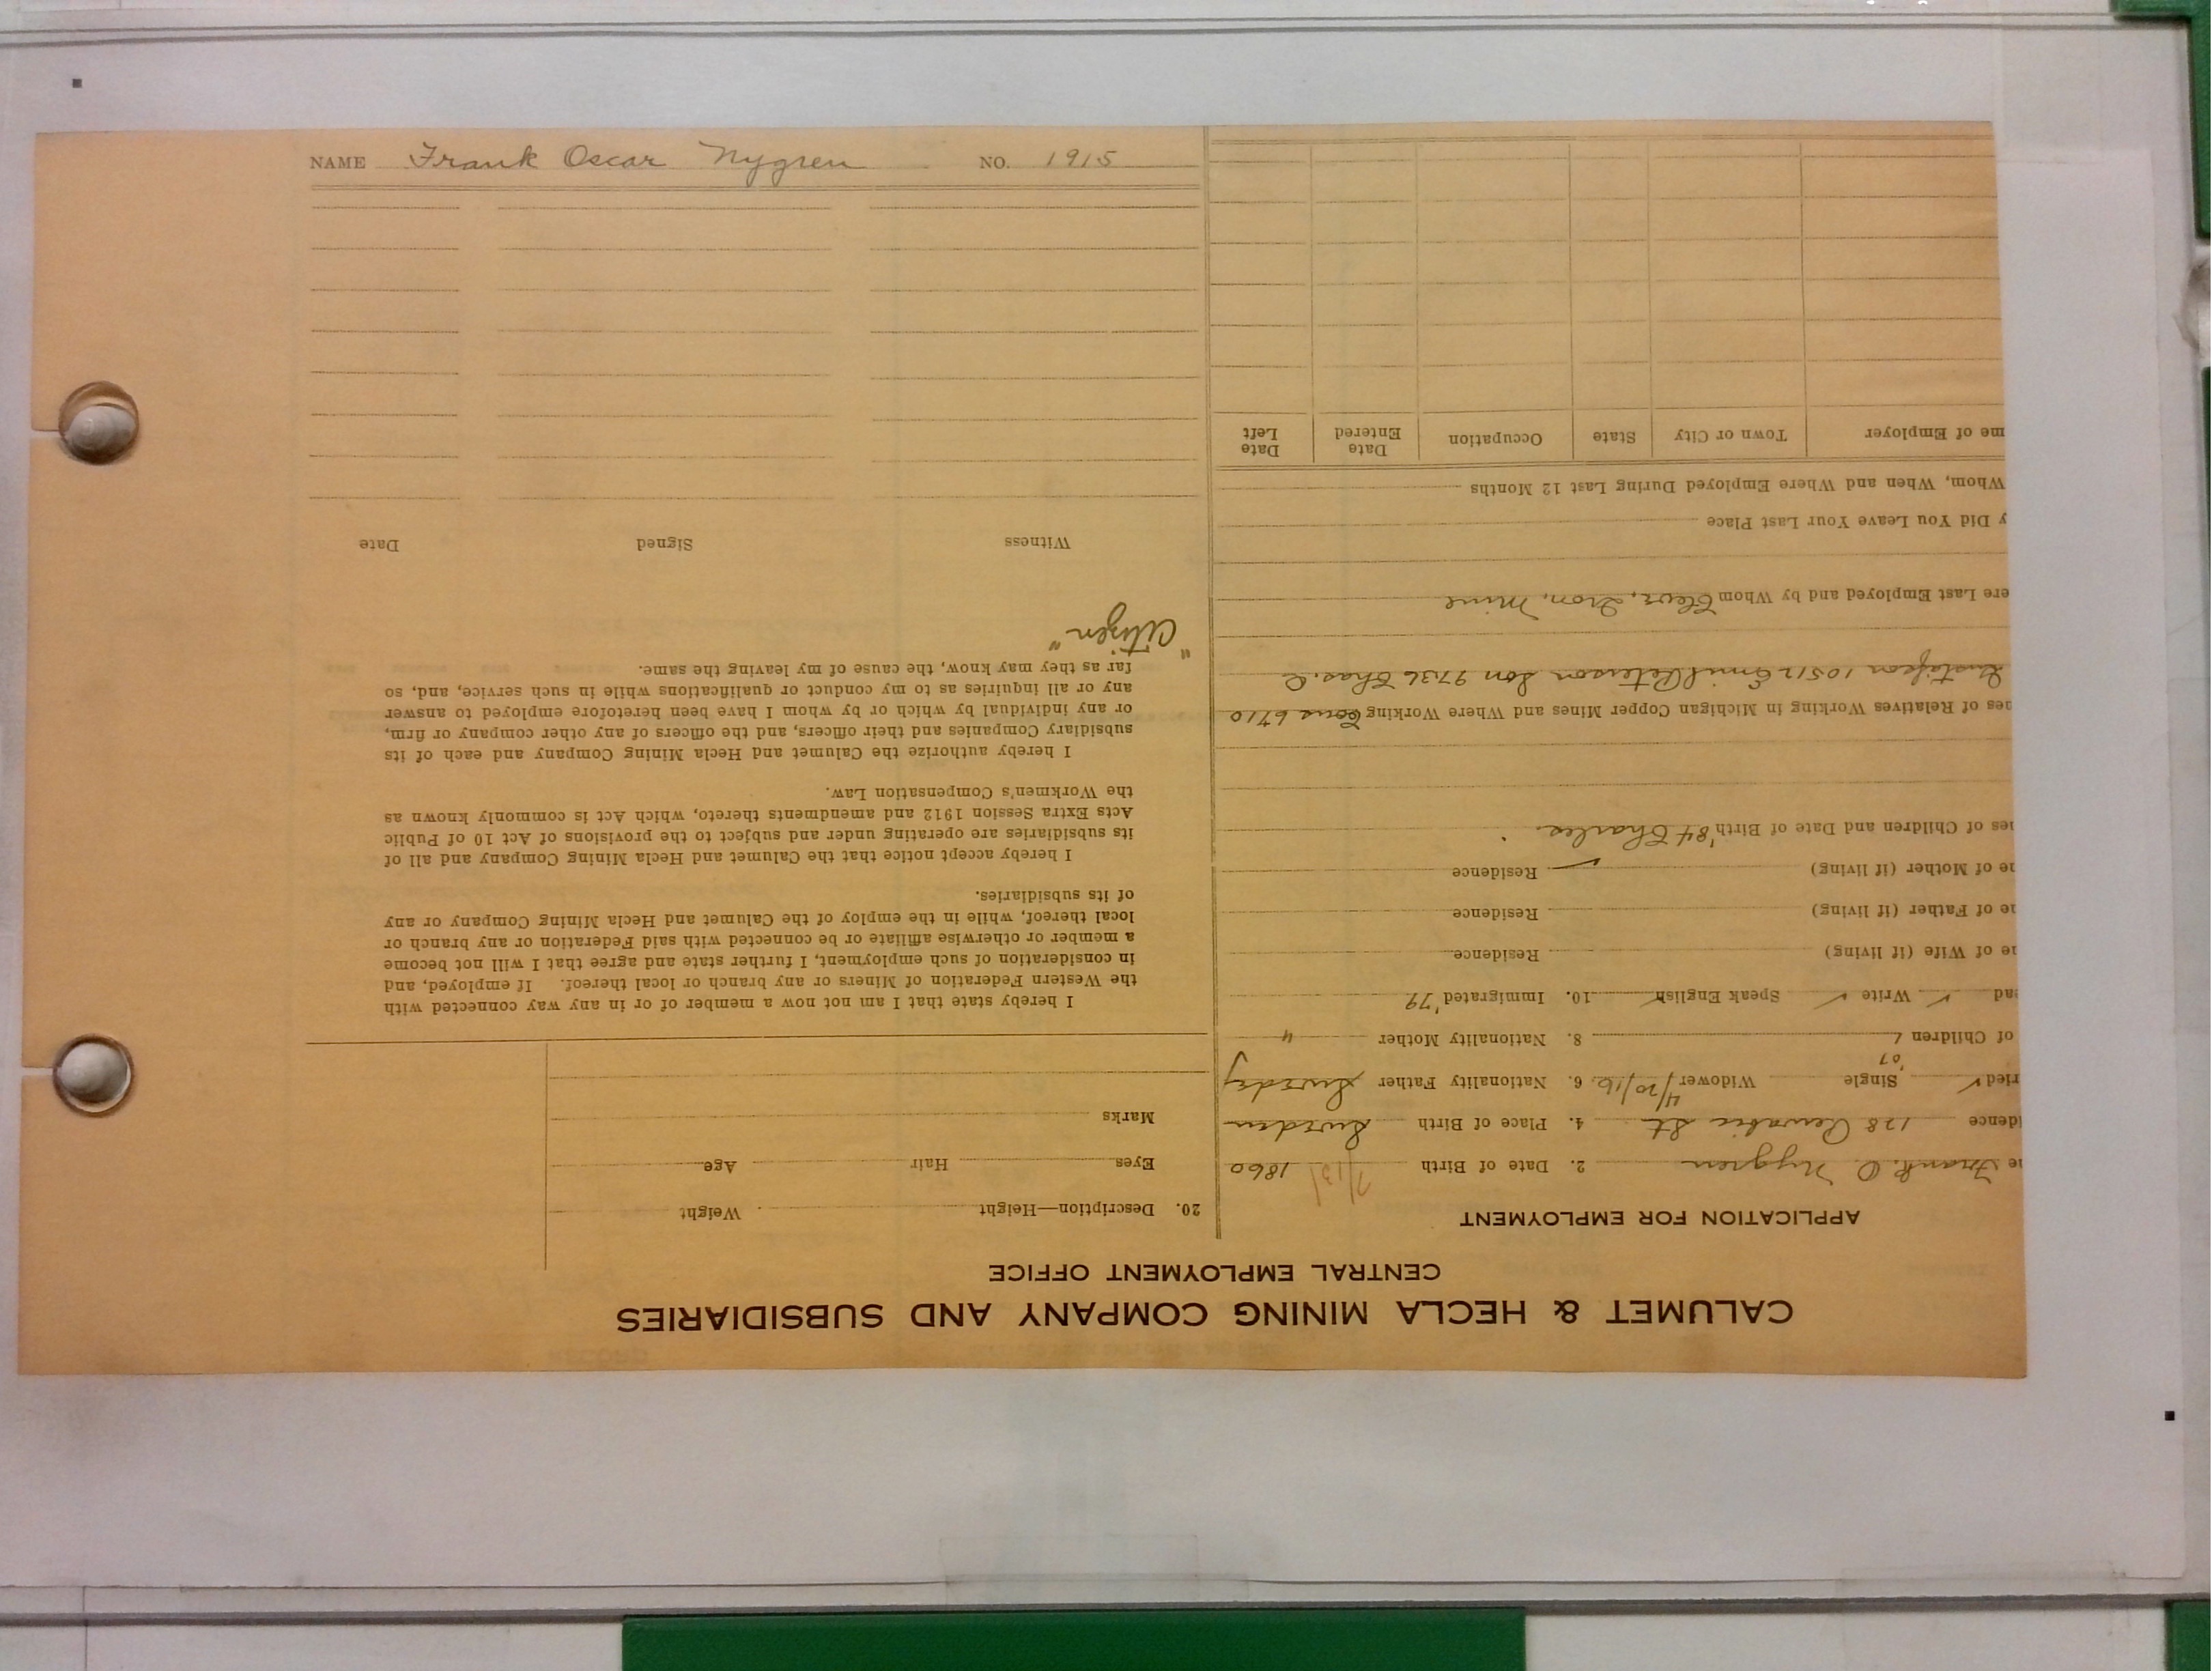 NAME Frank Oscar Nygren NO. 1915
CALUMET & HECLA MINING COMPANY AND SUBSIDIARIES
CENTRAL EMPLOYMENT OFFICE
APPLICATION FOR EMPLOYMENT
ne Frank O. Nygren 2. Date of Birth 7/13/ 1860
idence 128 St. 4. Place of Birth Sweden
ried ✓ Single '07 Widower 4/20/16 6. Nationality Father Swede
of Children 1 8. Nationality Mother "
ead ✓ Write ✓ Speak English ✓ 10. Immigrated '79
ne of Wife (if living) Residence
ne of Father (if living) Residence
ne of Mother (if living) Residence
nes of Children and Date of Birth '84 Charles.
nes of Relatives Working in Michigan Copper Mines and Where Working 6710
Gustafson 10512 Emil Peterson Son 9736 Chas. O
ere Last Employed and by Whom Iron, Mine
y Did You Leave Your Last Place
Whom, When and Where Employed During Last 12 Months
me of Employer Town or City State Occupation Date Entered Date Left
20. Description—Height Weight
Eyes Hair Age
Marks
I hereby state that I am not now a member of or in any way connected with
the Western Federation of Miners or any branch or local thereof. If employed, and
in consideration of such employment, I further state and agree that I will not become
a member or otherwise affiliate or be connected with said Federation or any branch or
local thereof, while in the employ of the Calumet and Hecla Mining Company or any
of its subsidiaries.
I hereby accept notice that the Calumet and Hecla Mining Company and all of
its subsidiaries are operating under and subject to the provisions of Act 10 of Public
Acts Extra Session 1912 and amendments thereto, which Act is commonly known as
the Workmen's Compensation Law.
I hereby authorize the Calumet and Hecla Mining Company and each of its
subsidiary Companies and their officers, and the officers of any other company or firm,
or any individual by which or by whom I have been heretofore employed to answer
any or all inquiries as to my conduct or qualifications while in such service, and, so
far as they may know, the cause of my leaving the same.
"Citizen"
Witness Signed Date